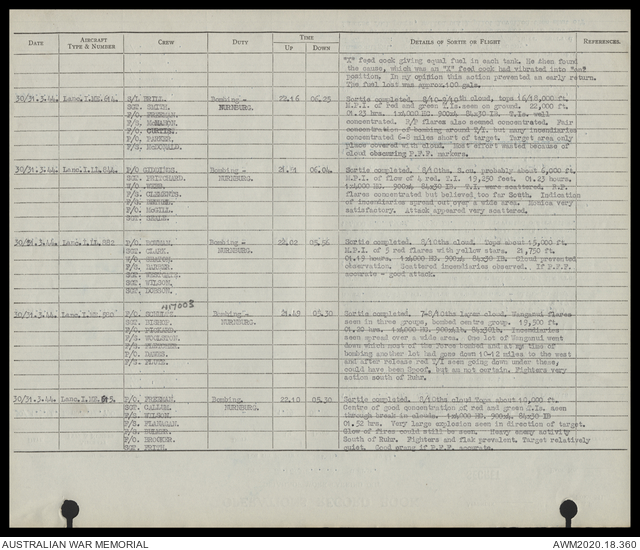 DATE
AIRCRAFT TYPE & NUMBER
CREW
DUTY
TIME
UP
DOWN
DETAILS OF SORTIE OR FLIGHT
REFERENCES.
"X" feed cock giving equal fuel in each tank. He then found
the cause, which was an "X" feed cock had vibrated into "on"
position. In my opinion this action prevented an early return.
The fuel lost was approx.100 gals.
30/31.3.44. Lanc.I.ME.614. Bombing - NURNBURG. 22.16 06.25
Sortie completed. 8/10-9/10th cloud, tops 16/18,000 ft.
M.P.I. of red and green T.Is.seen on ground. 22,000 ft.
01.23 hrs. 1x4000 HC. 900x4 84x30 IB. T.Is. well
concentrated. R/P flares also seemed concentrated. Fair
concentration of bombing around T/I. but many incendiaries
concentrated 6-8 miles short of target. Target area only
place covered with cloud. Most effort wasted because of
cloud obscuring P.F.F. markers.
P/O. FREEMAN.
P/O. CURTIS.
30/31.3.44. Bombing - NURNBURG. 21.51 06.04
Sortie completed. 8/10ths, S.cu. probably about 6,000 ft.
M.P.I. of flow of 4 red. T.I. 19,250 feet. 01.23 hours.
1x4000 HC. 900x4 84x30 IB. T.I. were scattered. R.P.
flares concentrated but believed too far South. Indication
of incendiaries spread out over a wide area. Monica very
satisfactory. Attack appeared very scattered.
SGT. PRITCHARD.
F/S. CLEMENTS.
P/O. McGILL.
30/31.3.44. Bombing - NURNBURG. 22.02 05.56
Sortie completed. 8/10ths cloud. Tops about 15,000 ft.
M.P.I. of 5 red flares with yellow stars. 21,750 ft.
01.19 hours. 1x4000 HC. 900x4 84x30 IB. Cloud prevented
observation. Scattered incendiaries observed. If P.F.F.
accurate - good attack.
SGT. CLARK.
SGT. WILSON.
SGT. DOBSON.
417003
30/31.3.44. Bombing - NURNBURG. 21.49 05.30
Sortie completed. 7-8/10ths layer cloud. Wanganui flares
seen in three groups, bombed centre group. 19,500 ft.
01.20 hrs. Incendiaries
seen spread over a wide area. One lot of Wanganui went
down which most of the force bombed and at my time of
bombing another lot had gone down 10-12 miles to the west
and after release red T/I seen going down under these,
could have been Spoof, but am not certain. Fighters very
active south of Ruhr.
SGT. BISHOP.
30/31.3.44. Bombing. NURNBURG. 22.10 05.30
Sortie completed. 8/10ths cloud Tops about 10,000 ft.
Centre of good concentration of red and green T.Is. seen
through break in clouds. 1x4000 HC. 900x4 84x30 IB
01.52 hrs. Very large explosion seen in direction of target.
Glow of fires could still be seen. Heavy enemy activity
South of Ruhr. Fighters and flak prevalent. Target relatively
quiet. Good prang if P.F.F. accurate.
P/O. FREEMAN.
SGT. CALLUM.
F/S. WILSON.
F/S. FLANAGAN.
P/O. BROOKER.
SGT. FRITH.
AUSTRALIAN WAR MEMORIAL
AWM2020.18.360